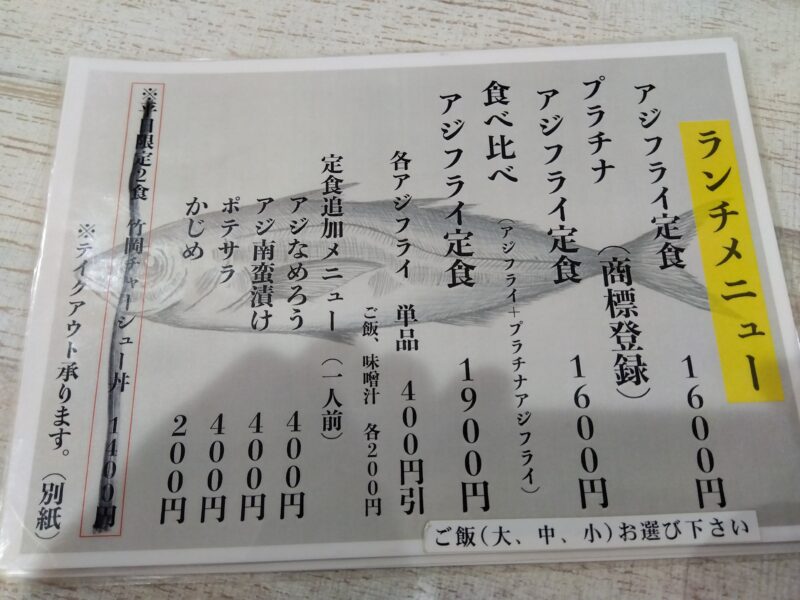 ランチメニュー
アジフライ定食 1600円
プラチナ (商標登録)
アジフライ定食 1600円
食べ比べ (アジフライ+プラチナアジフライ)
アジフライ定食 1900円
各アジフライ 単品 400円引
ご飯、味噌汁 各200円
定食追加メニュー (一人前)
アジなめろう 400円
アジ南蛮漬け 400円
ポテサラ 400円
かじめ 200円
※平日限定2食 竹岡チャーシュー丼 1400円
※テイクアウト承ります。(別紙)
ご飯(大、中、小)お選び下さい